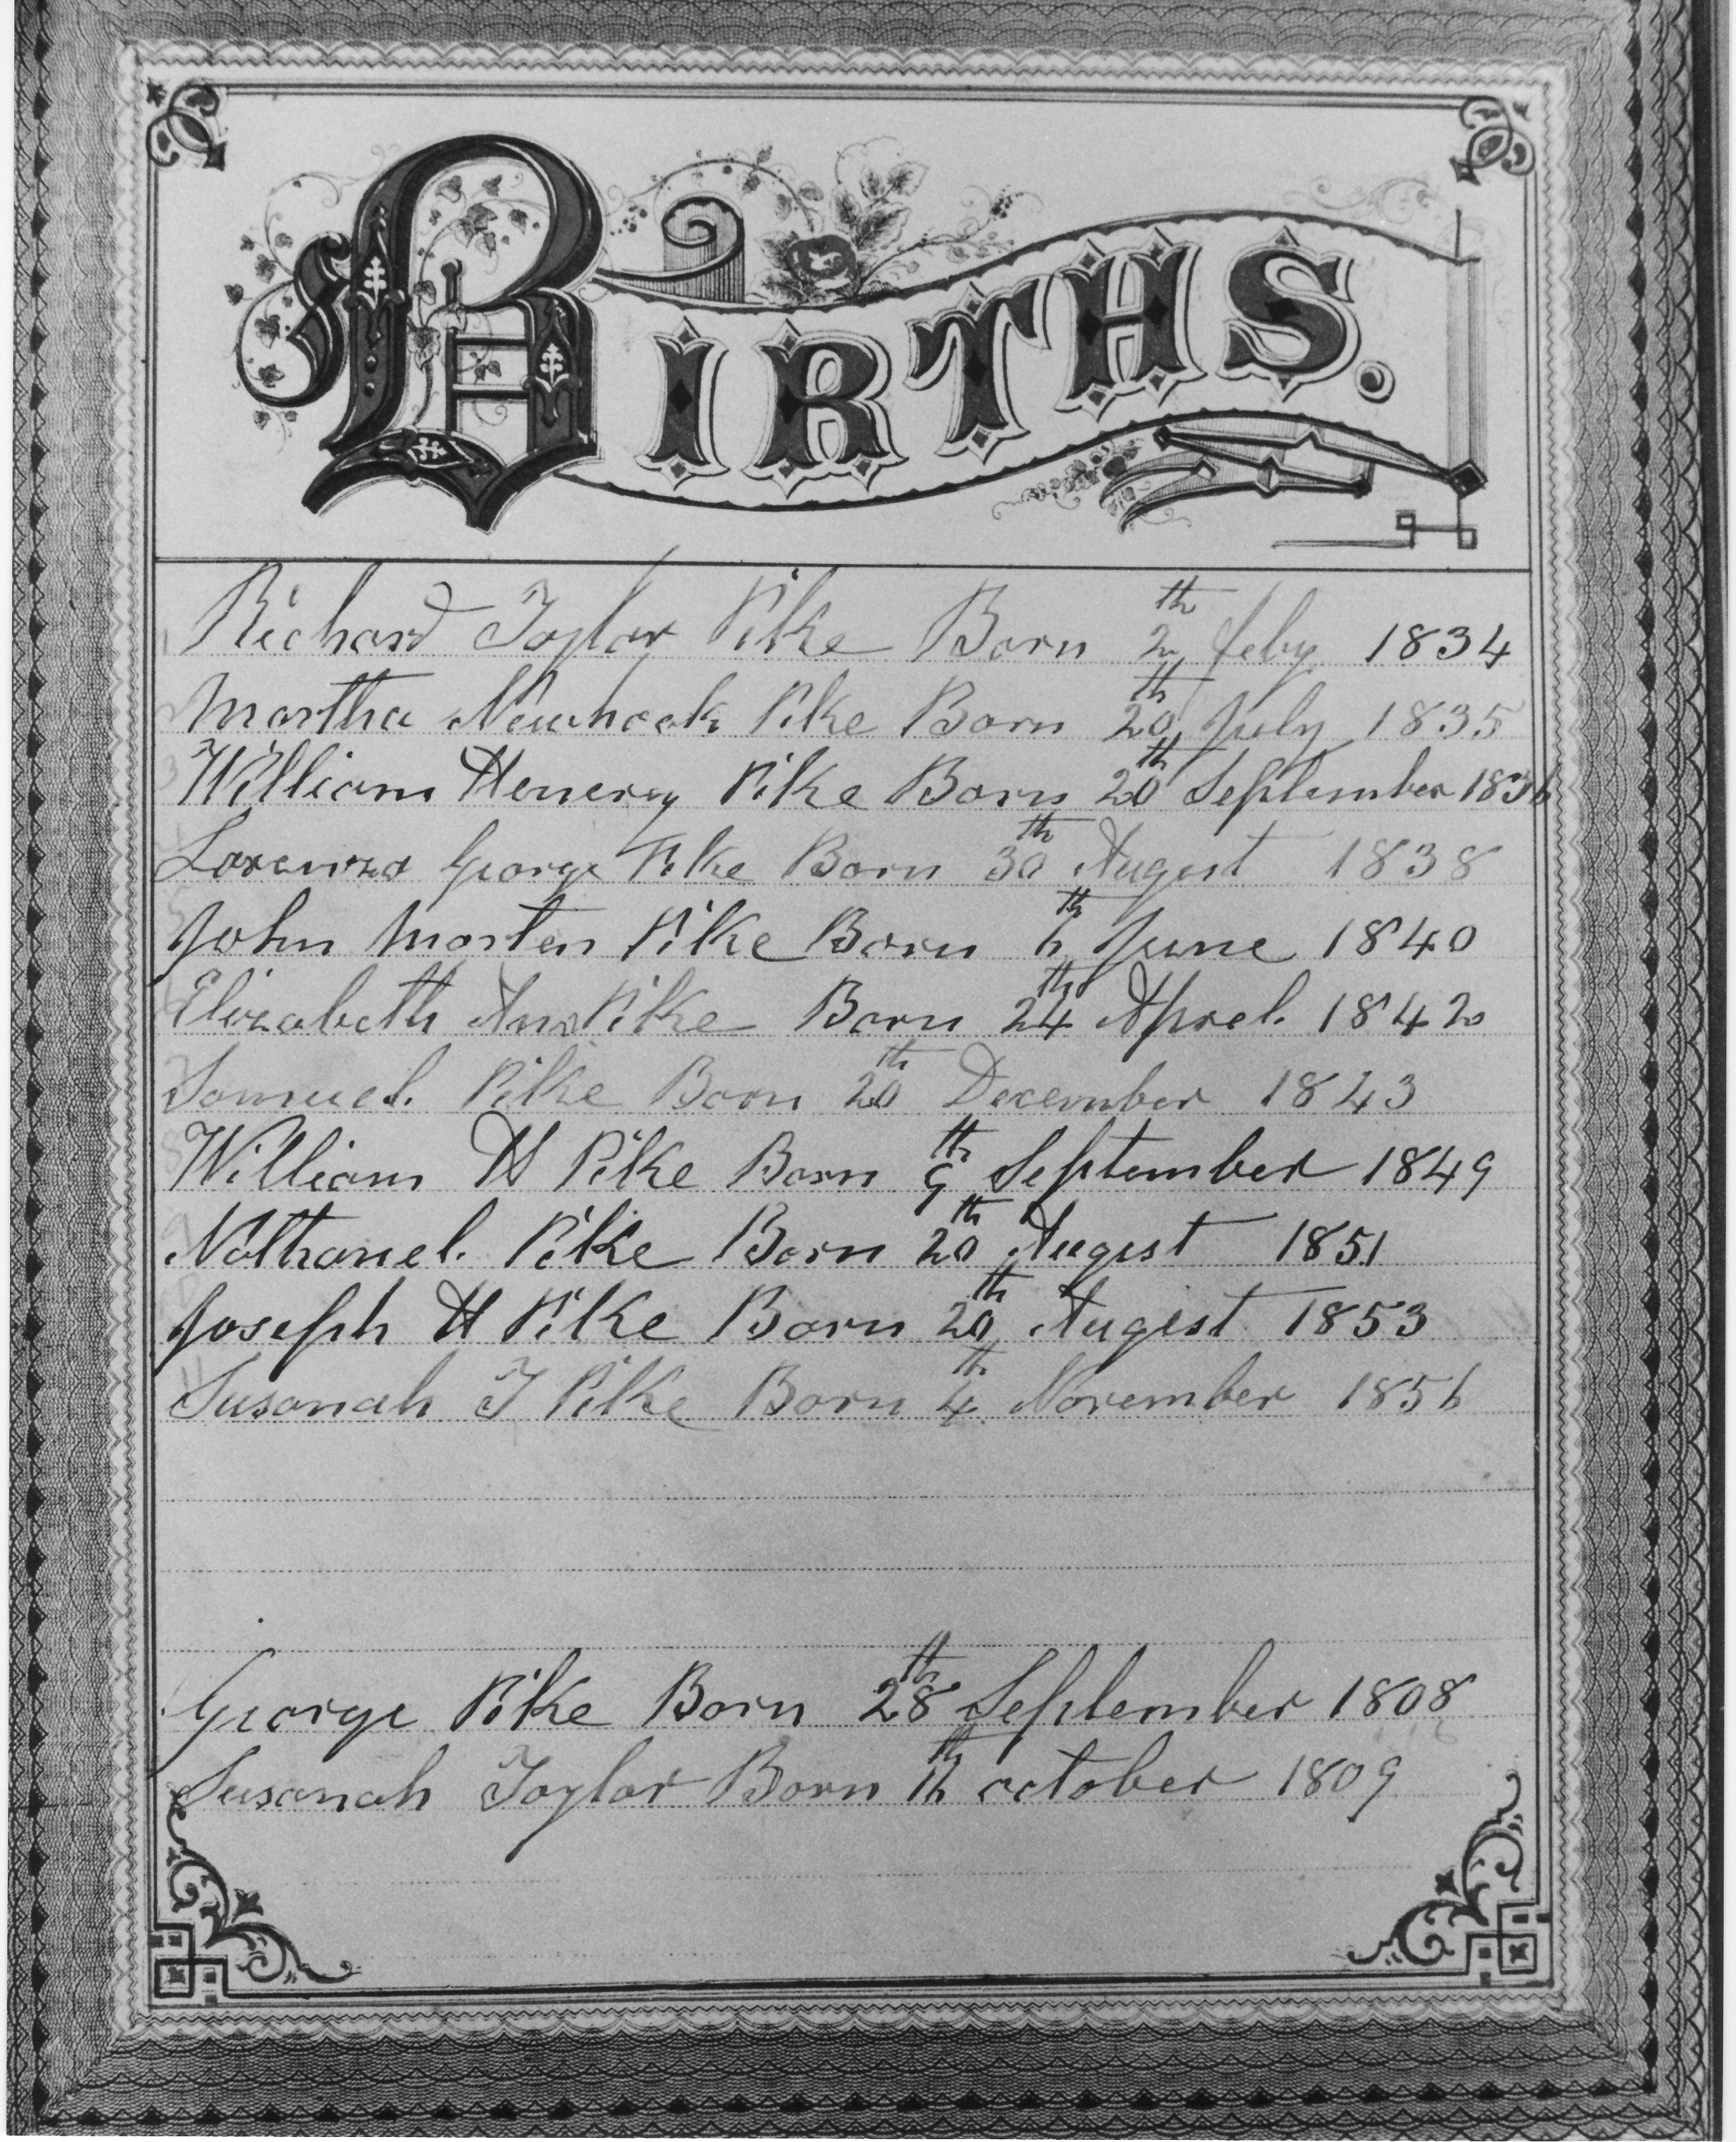 BIRTHS.
1 Richard Taylor Pike Born 2th feby 1834
Martha Newhook Pike Born 20th July 1835
3 William Henerey Pike Born 20th September 1836
Lorenzo George Pike Born 30th August 1838
5 John Marten Pike Born 6th June 1840
Elizabeth Ann Pike Born 24th Aprel. 1842
Samuel. Pike Born 20th December 1843
8 William H Pike Born 9th September 1849
Nathanel. Pike Born 20th August 1851
Joseph H Pike Born 20th Augest 1853
11 Susanah T Pike Born 4th November 1856
George Pike Born 28th September 1808
Susanah Taylor Born 16th october 1809